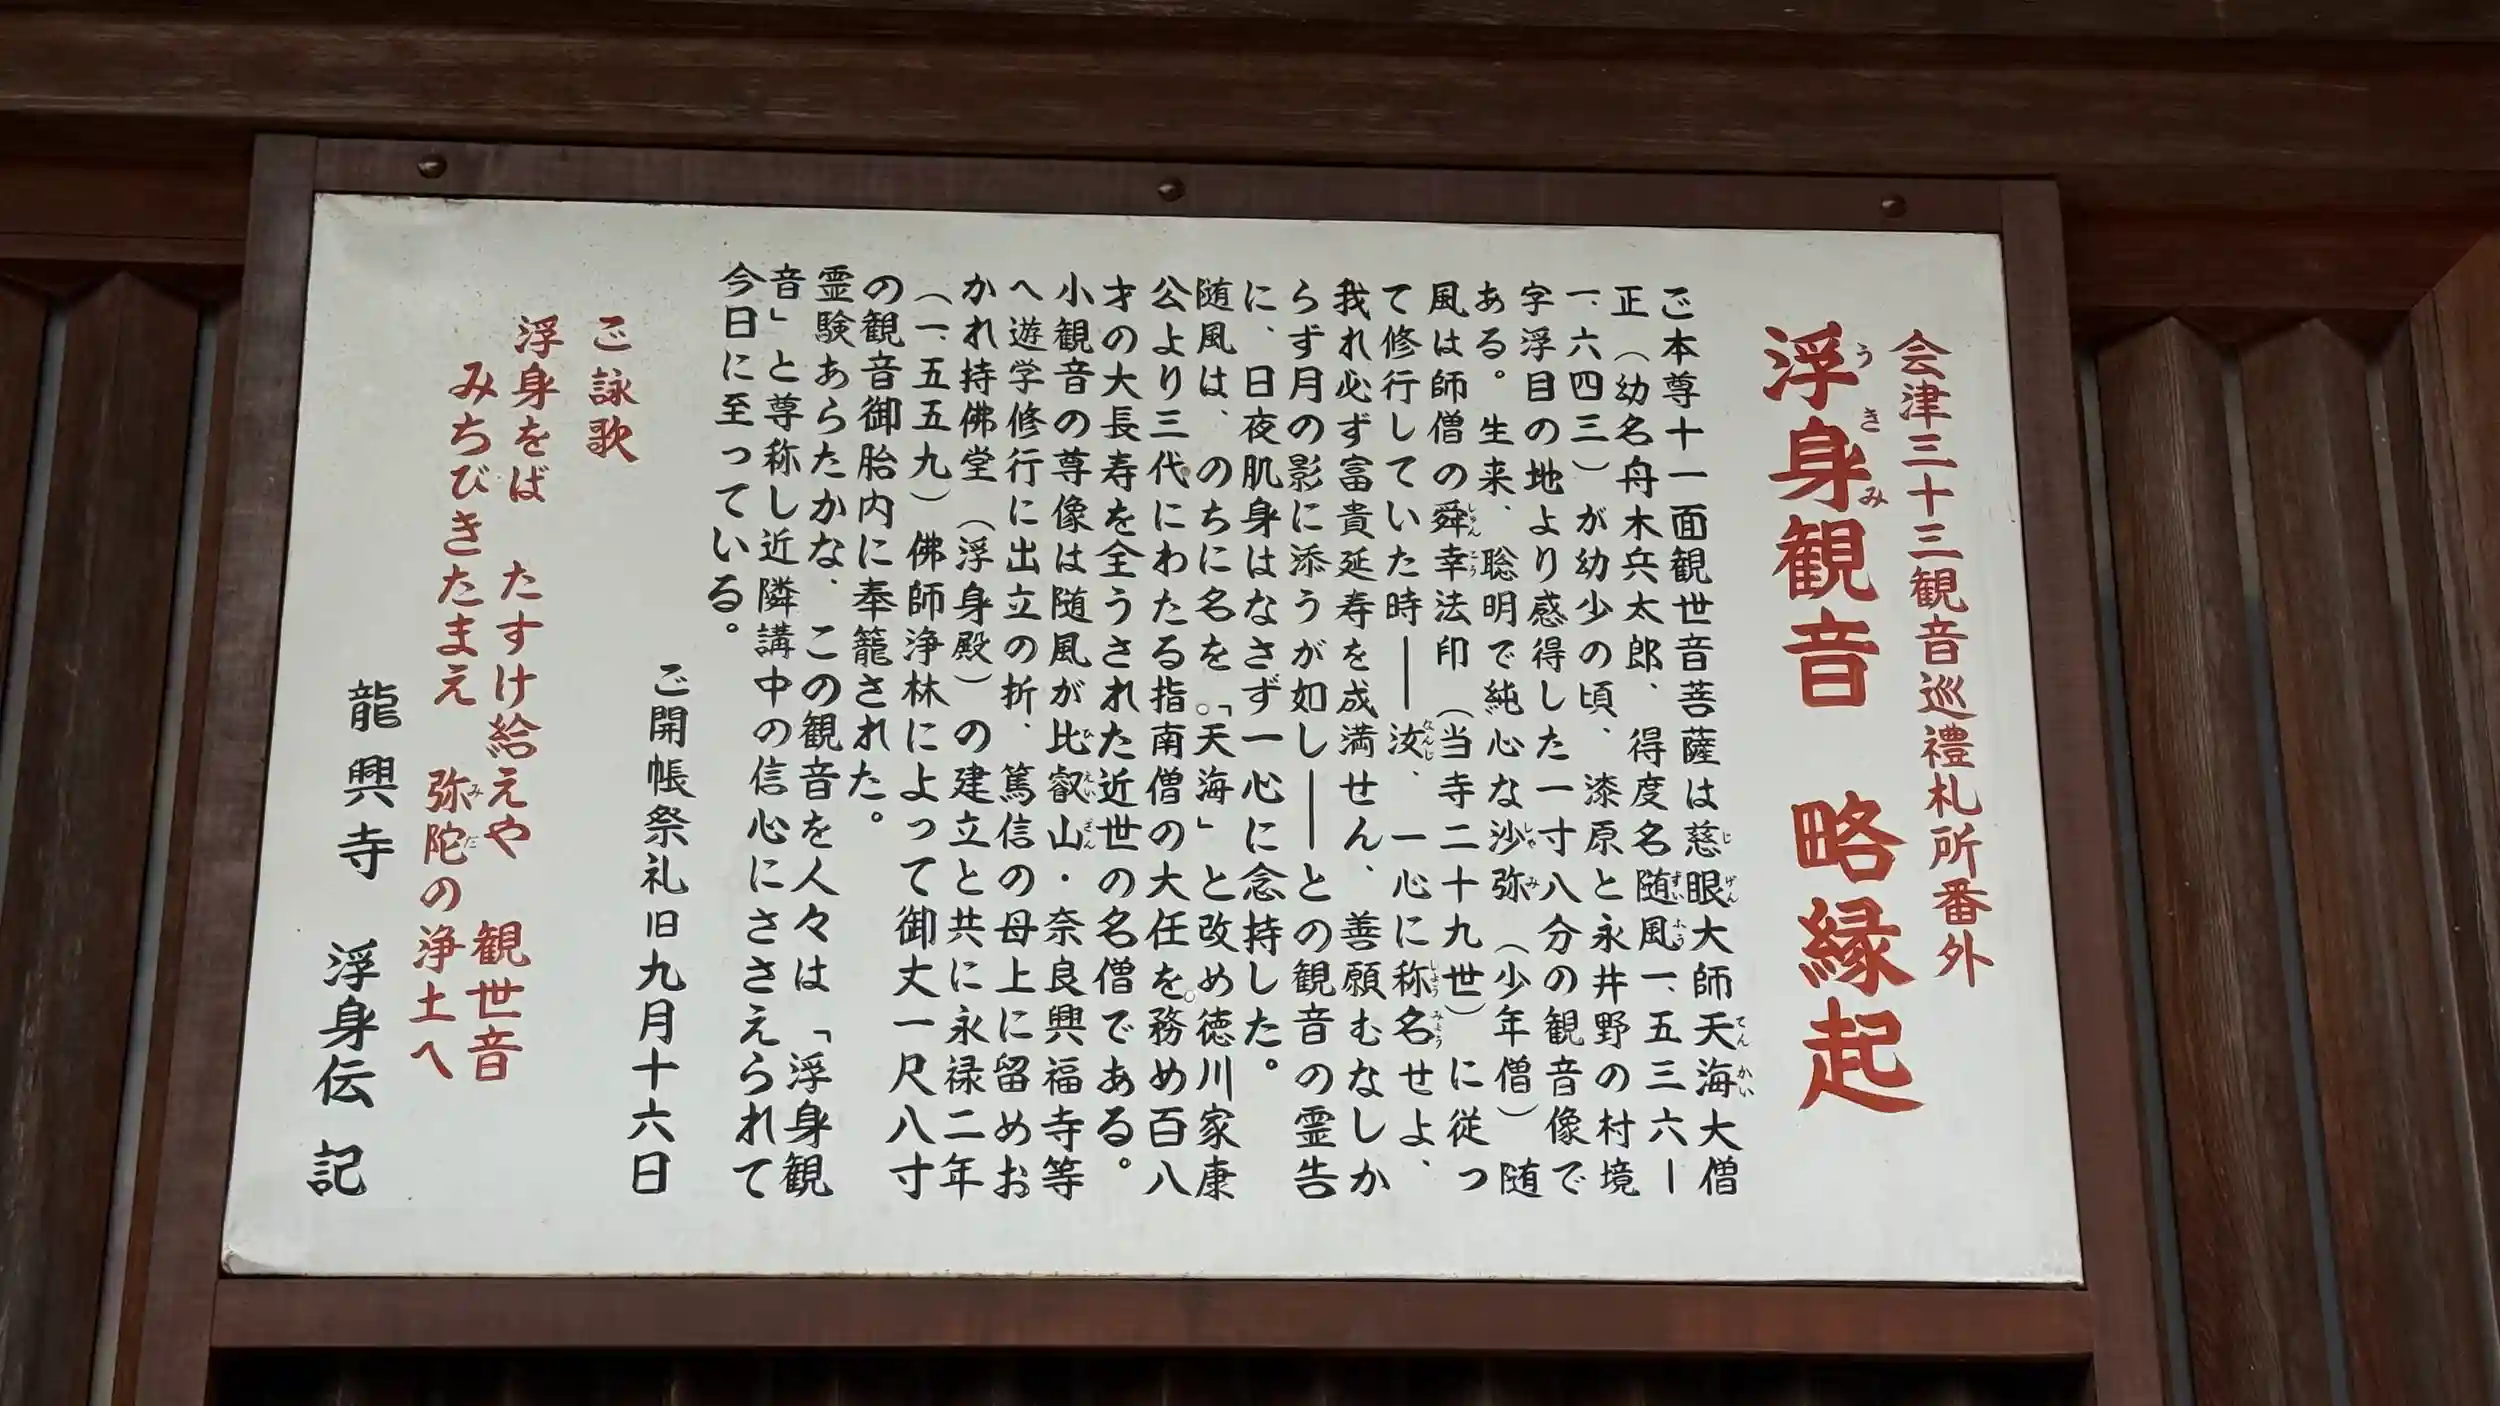 会津三十三観音巡禮札所番外
浮身観音 略縁起
ご本尊十一面観世音菩薩は慈眼大師天海大僧
正（幼名舟木兵太郎、得度名随風一、五三六ー
一、六四三）が幼少の頃、漆原と永井野の村境
字浮目の地より感得した一寸八分の観音像で
ある。生来、聡明で純心な沙弥（少年僧）随
風は師僧の舜幸法印（当寺二十九世）に従っ
て修行していた時――汝、一心に称名せよ、
我れ必ず富貴延寿を成満せん、善願むなしか
らず月の影に添うが如し――との観音の霊告
に、日夜肌身はなさず一心に念持した。
随風は、のちに名を「天海」と改め徳川家康
公より三代にわたる指南僧の大任を務め百八
才の大長寿を全うされた近世の名僧である。
小観音の尊像は随風が比叡山・奈良興福寺等
へ遊学修行に出立の折、篤信の母上に留めお
かれ持佛堂（浮身殿）の建立と共に永禄二年
（一、五五九）佛師浄林によって御丈一尺八寸
の観音御胎内に奉籠された。
霊験あらたかな、この観音を人々は「浮身観
音」と尊称し近隣講中の信心にささえられて
今日に至っている。
ご開帳祭礼旧九月十六日
ご詠歌
浮身をば たすけ給えや 観世音
みちびきたまえ 弥陀の浄土へ
龍興寺 浮身伝 記